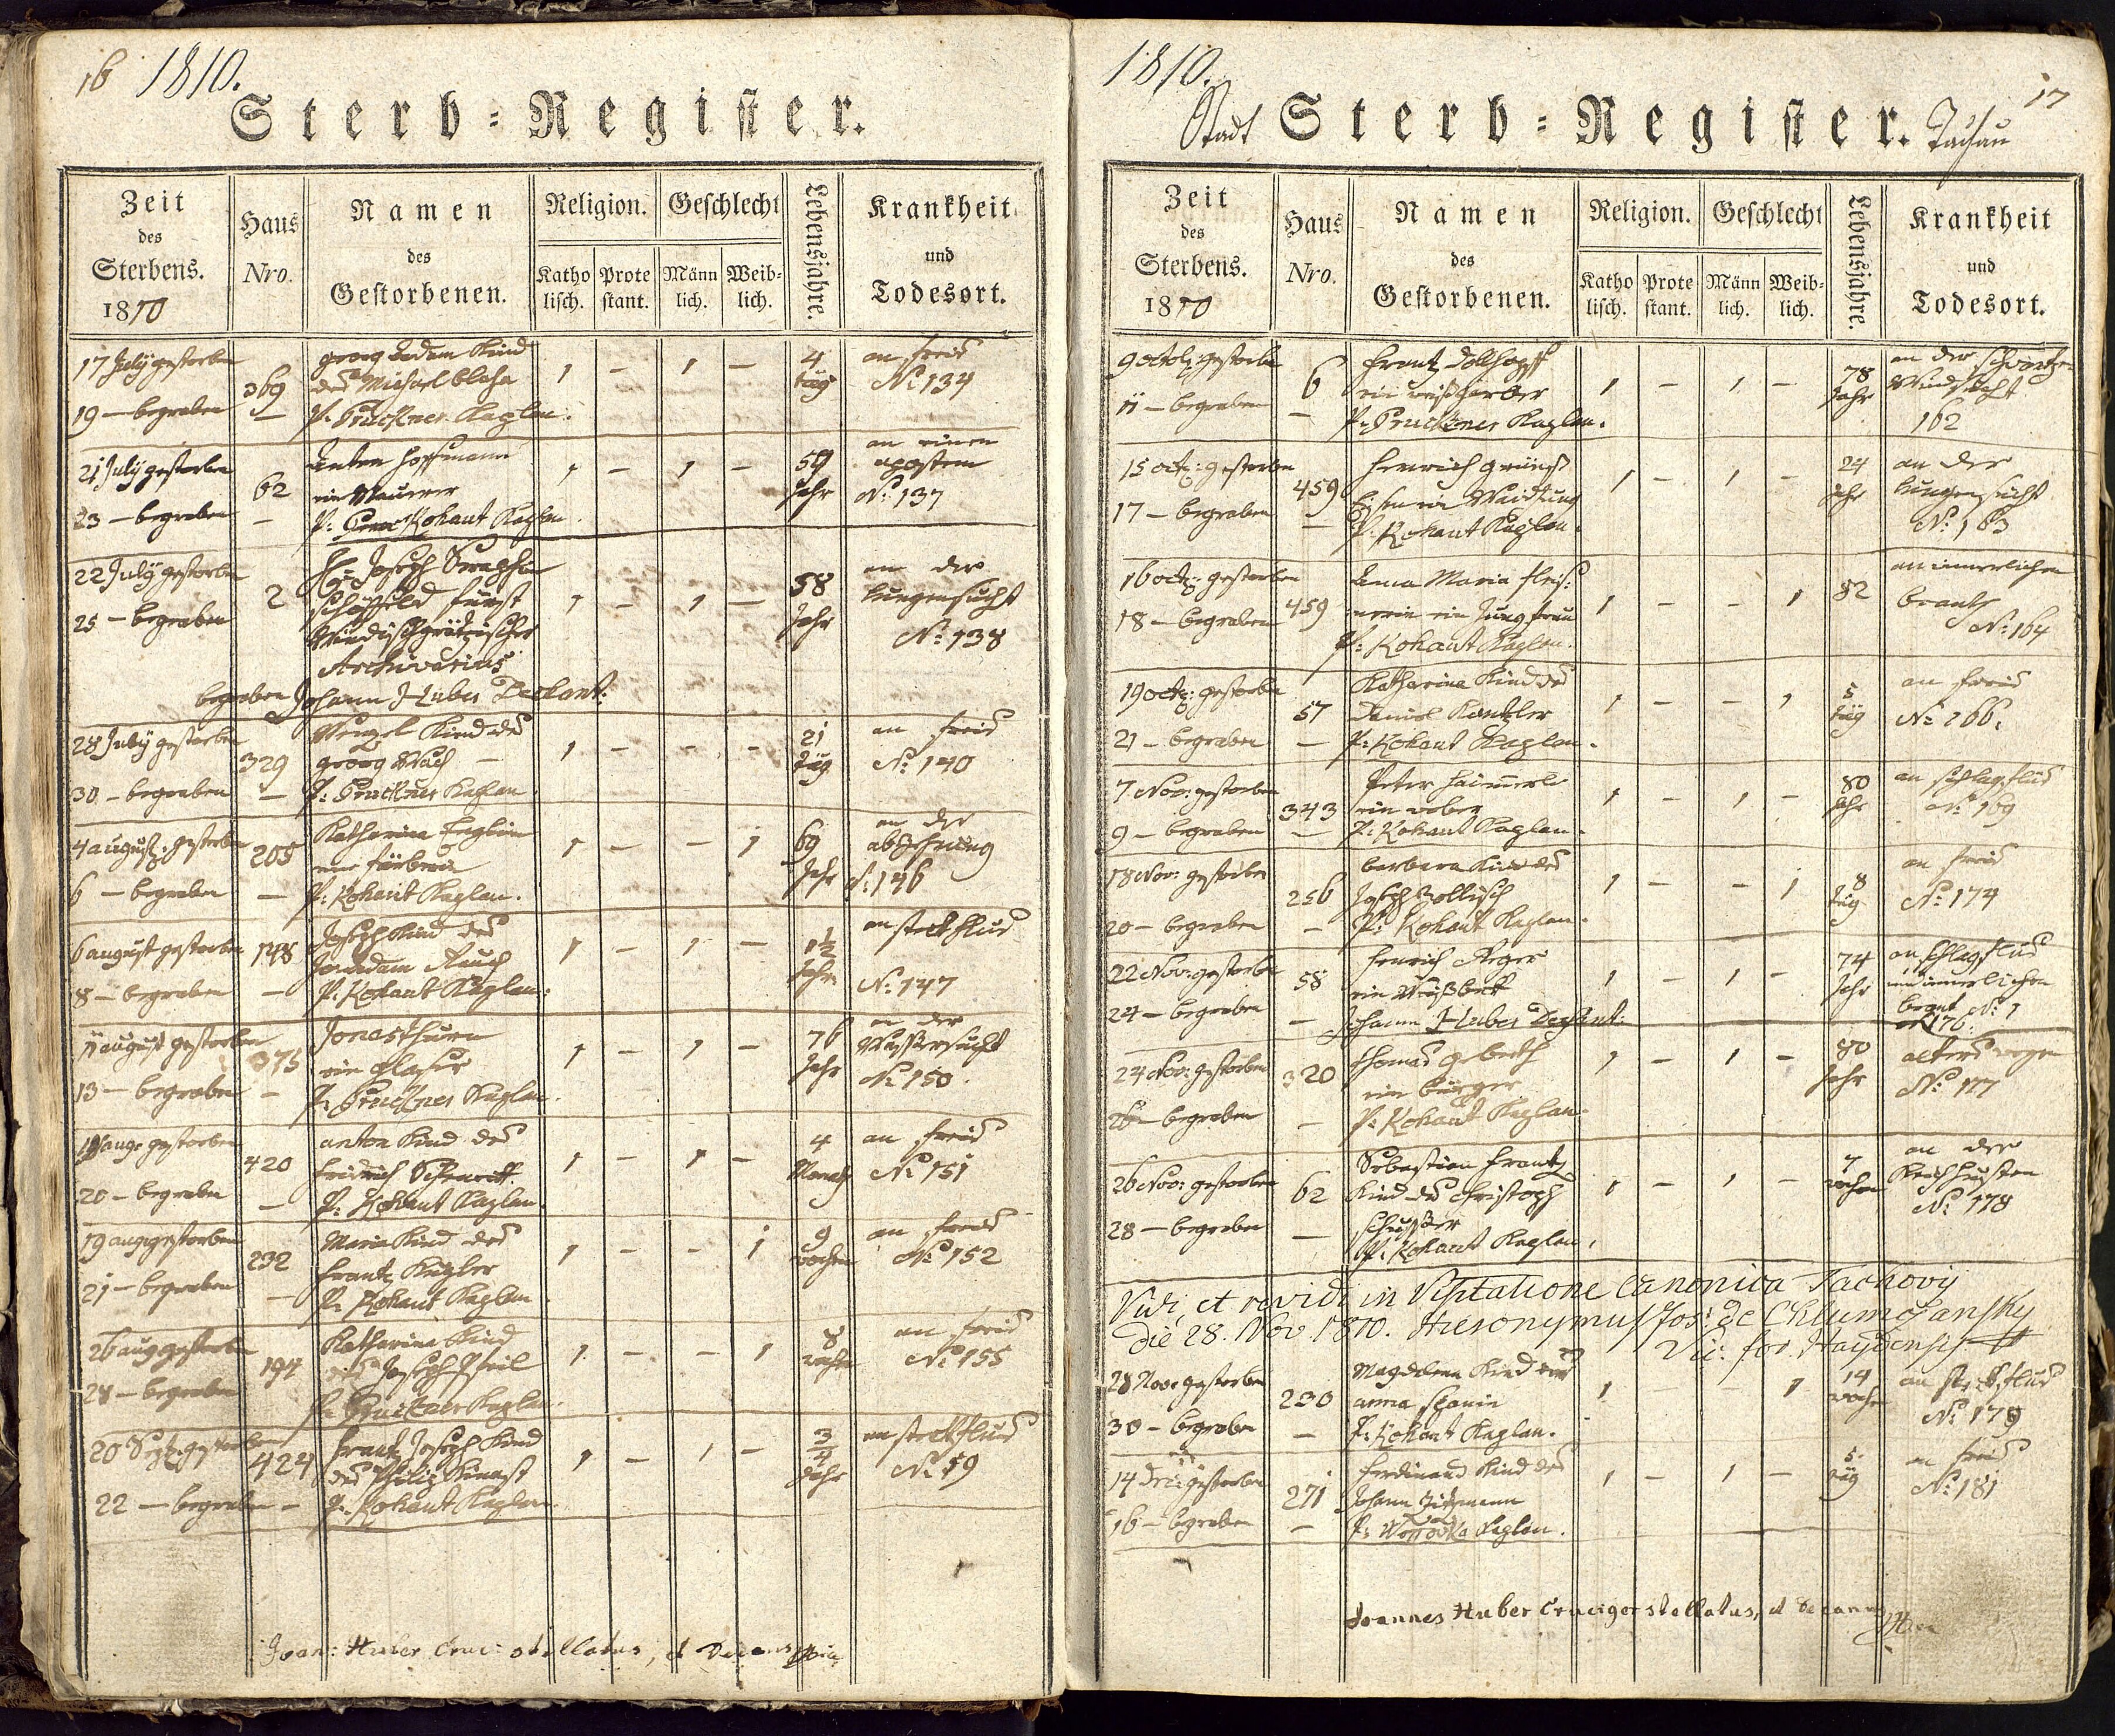 16 1810.
Sterb=Register.
Zeit des Sterbens. 1810
Haus Nro.
Namen des Gestorbenen.
Religion. Katholisch. Protestant.
Geschlecht Männlich. Weiblich.
Lebensjahre.
Krankheit und Todesort.
17 July gestorben 369 georg Adam Kind 1 – 1 – 4 an Freis
des Michael blaha tag № 134
19 – begraben – P. Pruckner Kaplan.
21 July gestorben 62 Anton Hoffmann 1 – 1 – 59 an einen
ein Maurer Jahr apostem
23 – begraben – P: Kohaut Kaplan. № 137
22 July gestorben 2 H= Joseph Seraphin 1 – 1 – 58 an der
fürst Jahr lungensucht
25 – begraben Windischgrätzischer № 138
Archivarius
begraben Johann Huber Dechant:
28 July gestorben 329 Wenzel Kind des 1 – – – 21 an Freis
georg tag № 140
30 – begraben – P: Pruckner Kaplan
4 august: gestorben 205 Katharina 1 – – 1 69 an der
ein färberin Jahr abzehrung
6 – begraben – P: Kohaut Kaplan. № 146
6 august gestorben 148 Joseph Kind des 1 – 1 – 1½ an steckflus
Adam Jahr
8 – begraben – P: Kohaut Kaplan: № 147
11 august gestorben 375 Jonasthurn 1 – 1 – 76 an der
ein glaser Jahr Wassersucht
13 – begraben – P: Pruckner Kaplan. № 150.
aug: gestorben 420 anton Kind des 1 – 1 – 4 an Freis
Fridrich Monath № 151
20 – begraben – P: Kohaut Kaplan.
19 aug: gestorben 232 Maria Kind des 1 – – 1 9 an Freis
Frantz Kugler wochen № 152
21 – begraben – P: Kohaut Kaplan.
26 aug gestorben 194 Katharina Kind 1 – – 1 8 an Freis
des Joseph Pfeil wochen № 155
28 – begraben P: Pruckner Kaplan.
20 Sept: gestorben 424 Frantz Joseph Kind 1 – 1 – 3/4 an steckflus
des Philip Jahr № 159
22 – begraben – P: Kohaut Kaplan.
Joan: Huber Cruci: stellatus, et Decanus
1810. 17
Stadt Sterb=Register. Tachau
Zeit des Sterbens. 1810
Haus Nro.
Namen des Gestorbenen.
Religion. Katholisch. Protestant.
Geschlecht Männlich. Weiblich.
Lebensjahre.
Krankheit und Todesort.
9 octob: gestorben 6 Frantz Dollhopff 1 – 1 – 78 an der
ein weißgärber Jahr
11 – begraben – P: Pruckner Kaplan. 162
15 oct: gestorben 459 Henrich 1 – 1 – 24 an der
Jahr lungensucht
17 – begraben – P: Kohaut Kaplan. № 163
16 oct: gestorben 459 Anna Maria 1 – – 1 82 an innerlichen
ein Jungfrau brand
18 – begraben P: Kohaut Kaplan. № 164
19 oct: gestorben 57 Katharina Kind des 1 – – 1 5 an Freis
Daniel Kantzler tag № 166.
21 – begraben – P: Kohaut Kaplan.
7 Nov: gestorben 343 Peter Haimerl 1 – 1 – 80 an schlagflus
ein weber Jahr № 169
9 – begraben – P: Kohaut Kaplan.
18 Nov: gestorben 256 barbara Kind des 1 – – 1 8 an Freis
Joseph Zollitsch tag № 174
20 – begraben – P: Kohaut Kaplan.
22 Nov: gestorben 58 Henrich 1 – 1 – 74 an schlagflus
ein Weißbeck Jahr und innerlichen
24 – begraben – Johann Huber Dechant: brant № 176.
24 Nov: gestorben 320 Thomas 1 – 1 – 80 alters wegen
ein bürger Jahr № 177
26 – begraben – P: Kohaut Kaplan.
26 Nov: gestorben 62 Sebastian Frantz 1 – 1 – 7 an der
Kind des Christoph wochen Keichhusten
28 – begraben – schuster № 178
P: Kohaut Kaplan.
Vidi, et revidi in Visitatione Canonica Tachovij
die 28. Nov 1810. Hieronymus Jos: de Chlumczansky
Vic: for. Haydensis
28 Nov: gestorben 230 Magdalena Kind der 1 – – 1 14 an steckflus
anna wochen № 179
30 – begraben – P: Kohaut Kaplan.
14 Dec: gestorben 271 Ferdinand Kind des 1 – 1 – 5 an Freis
Johann tag № 181
16 – begraben – P: Kaplan.
Joannes Huber Cruciger stellatus, et Decanus